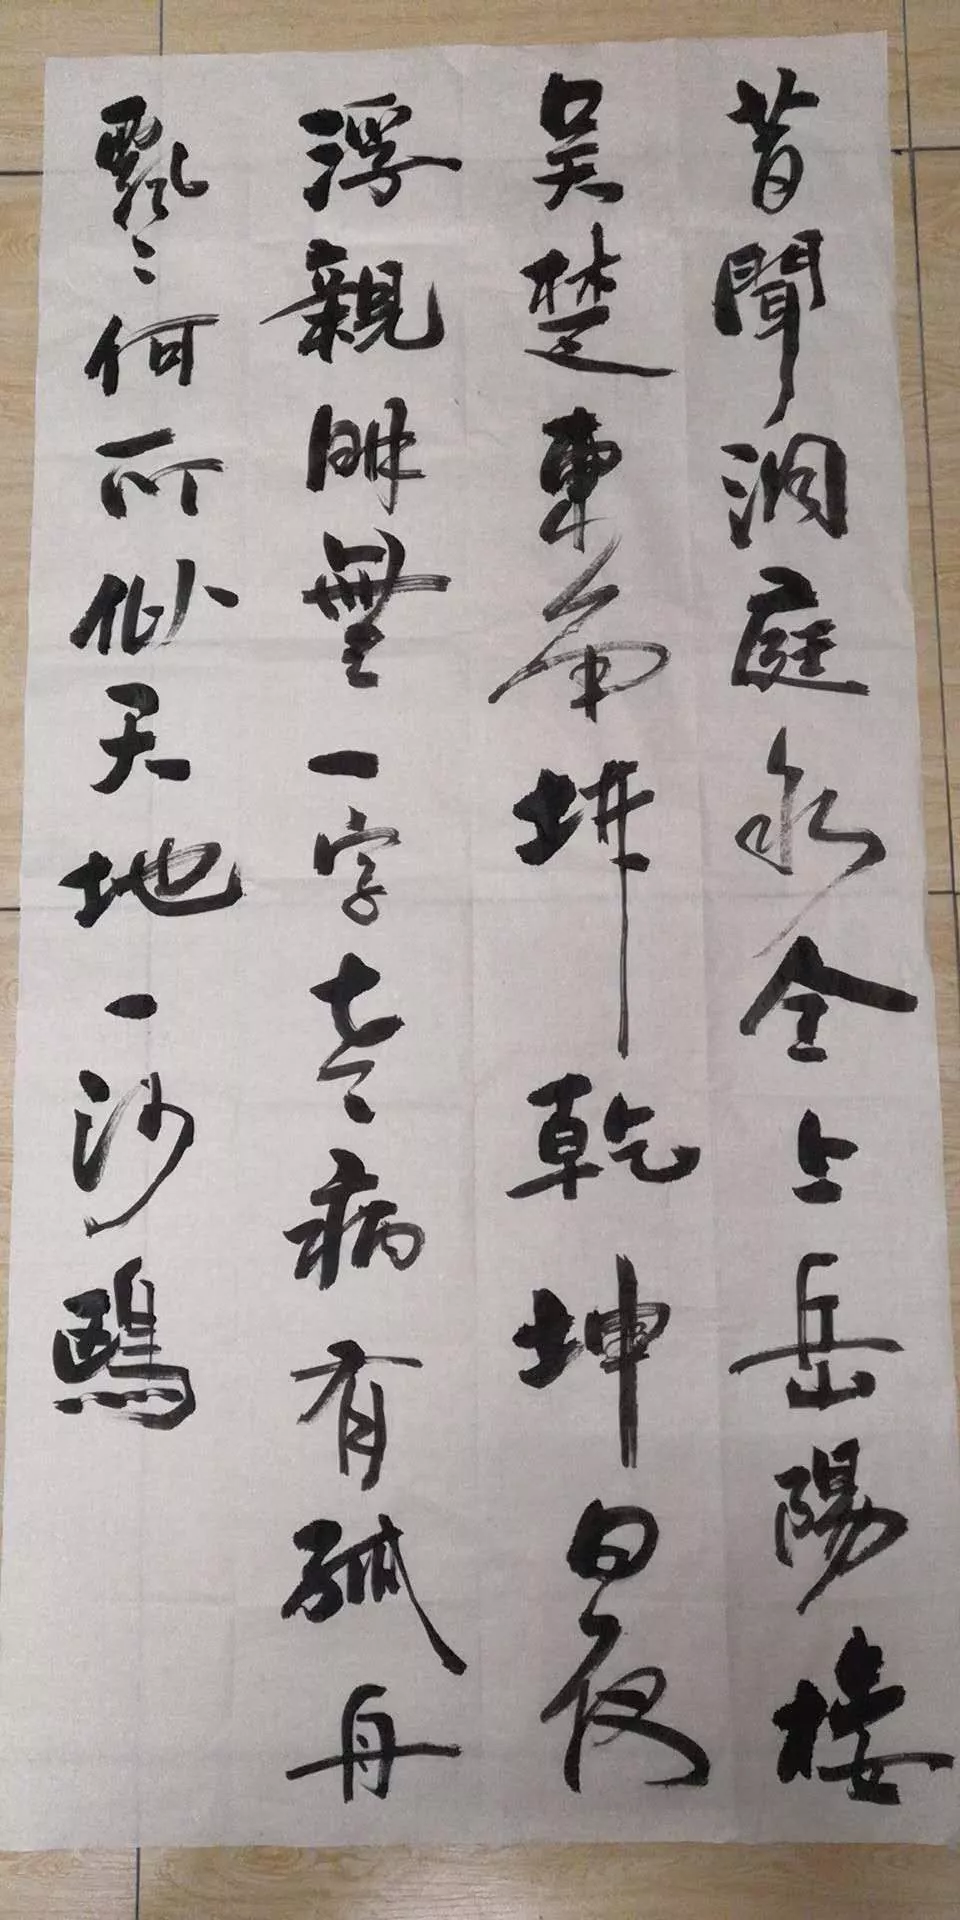 昔聞洞庭水今上岳陽樓
吳楚東南坼乾坤日夜
浮親朋無一字老病有孤舟
飄々何所似天地一沙鷗